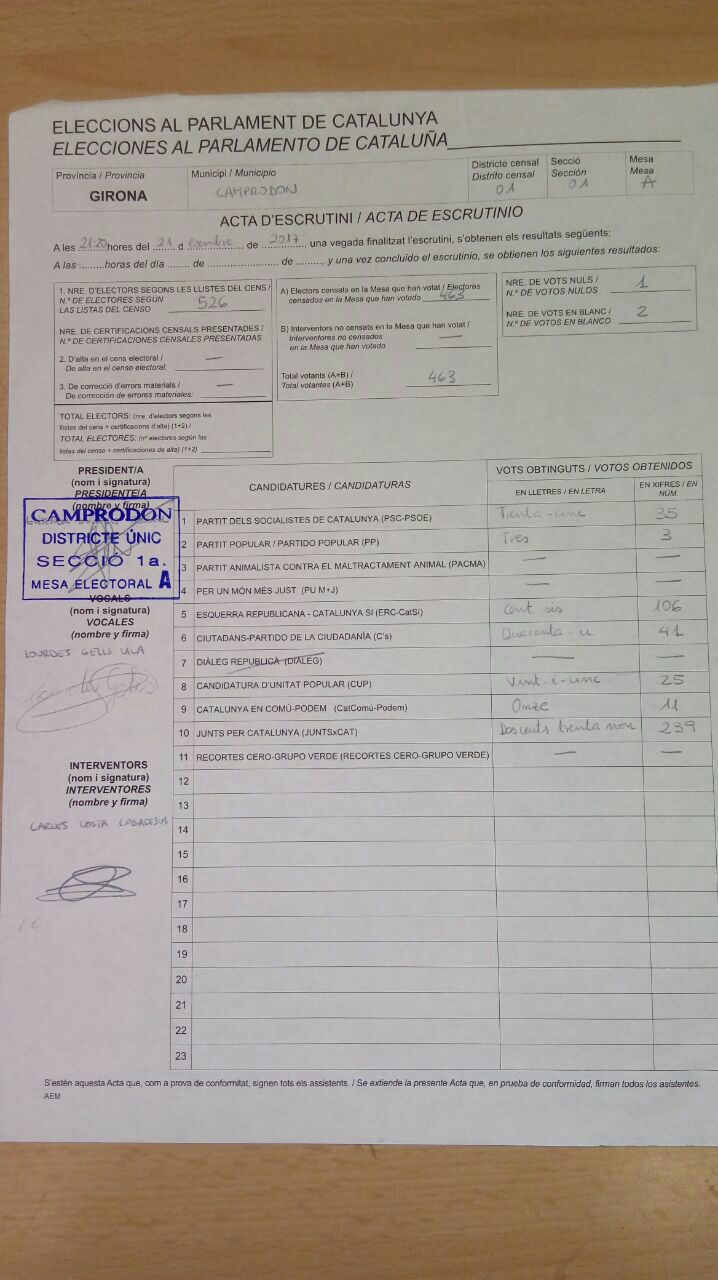 ELECCIONS AL PARLAMENT DE CATALUNYA
ELECCIONES AL PARLAMENTO DE CATALUÑA
Província / Provincia
GIRONA
Municipi / Municipio
CAMPRODON
Districte censal
Distrito censal
01
Secció
Sección
01
Mesa
Mesa
A
ACTA D'ESCRUTINI / ACTA DE ESCRUTINIO
A les 21:20 hores del 21 d esembre de 2017, una vegada finalitzat l'escrutini, s'obtenen els resultats següents:
A las .........horas del día ........ de .................................... de ........., y una vez concluido el escrutinio, se obtienen los siguientes resultados:
1. NRE. D'ELECTORS SEGONS LES LLISTES DEL CENS /
N.º DE ELECTORES SEGÚN
LAS LISTAS DEL CENSO 526
NRE. DE CERTIFICACIONS CENSALS PRESENTADES /
N.º DE CERTIFICACIONES CENSALES PRESENTADAS
2. D'alta en el cens electoral / —
De alta en el censo electoral:
3. De correcció d'errors materials / —
De corrección de errores materiales:
TOTAL ELECTORS: (nre. d'electors segons les
llistes del cens + certificacions d'alta) (1+2) /
TOTAL ELECTORES: (nº electores según las
listas del censo + certificaciones de alta) (1+2)
A) Electors censats en la Mesa que han votat / Electores
censados en la Mesa que han votado 463
B) Interventors no censats en la Mesa que han votat /
Interventores no censados
en la Mesa que han votado —
Total votants (A+B) /
Total votantes (A+B) 463
NRE. DE VOTS NULS /
N.º DE VOTOS NULOS 1
NRE. DE VOTS EN BLANC /
N.º DE VOTOS EN BLANCO 2
PRESIDENT/A
(nom i signatura)
PRESIDENTE/A
(nombre y firma)
CAMPRODON
DISTRICTE ÚNIC
SECCIÓ 1a.
MESA ELECTORAL A
VOCALS
(nom i signatura)
VOCALES
(nombre y firma)
LOURDES GELIS VILA
INTERVENTORS
(nom i signatura)
INTERVENTORES
(nombre y firma)
CARLES COSTA CASADESUS
CANDIDATURES / CANDIDATURAS
VOTS OBTINGUTS / VOTOS OBTENIDOS
EN LLETRES / EN LETRA
EN XIFRES / EN NÚM.
1 PARTIT DELS SOCIALISTES DE CATALUNYA (PSC-PSOE) Trenta-cinc 35
2 PARTIT POPULAR / PARTIDO POPULAR (PP) Tres 3
3 PARTIT ANIMALISTA CONTRA EL MALTRACTAMENT ANIMAL (PACMA) — —
4 PER UN MÓN MÉS JUST (PU M+J) — —
5 ESQUERRA REPUBLICANA - CATALUNYA SÍ (ERC-CatSí) Cent sis 106
6 CIUTADANS-PARTIDO DE LA CIUDADANÍA (C's) Quaranta-u 41
7 DIÀLEG REPUBLICÀ (DIÀLEG) — —
8 CANDIDATURA D'UNITAT POPULAR (CUP) Vint-i-cinc 25
9 CATALUNYA EN COMÚ-PODEM (CatComú-Podem) Onze 11
10 JUNTS PER CATALUNYA (JUNTSxCAT) Doscents trenta nou 239
11 RECORTES CERO-GRUPO VERDE (RECORTES CERO-GRUPO VERDE) — —
12
13
14
15
16
17
18
19
20
21
22
23
S'estén aquesta Acta que, com a prova de conformitat, signen tots els assistents. / Se extiende la presente Acta que, en prueba de conformidad, firman todos los asistentes.
AEM